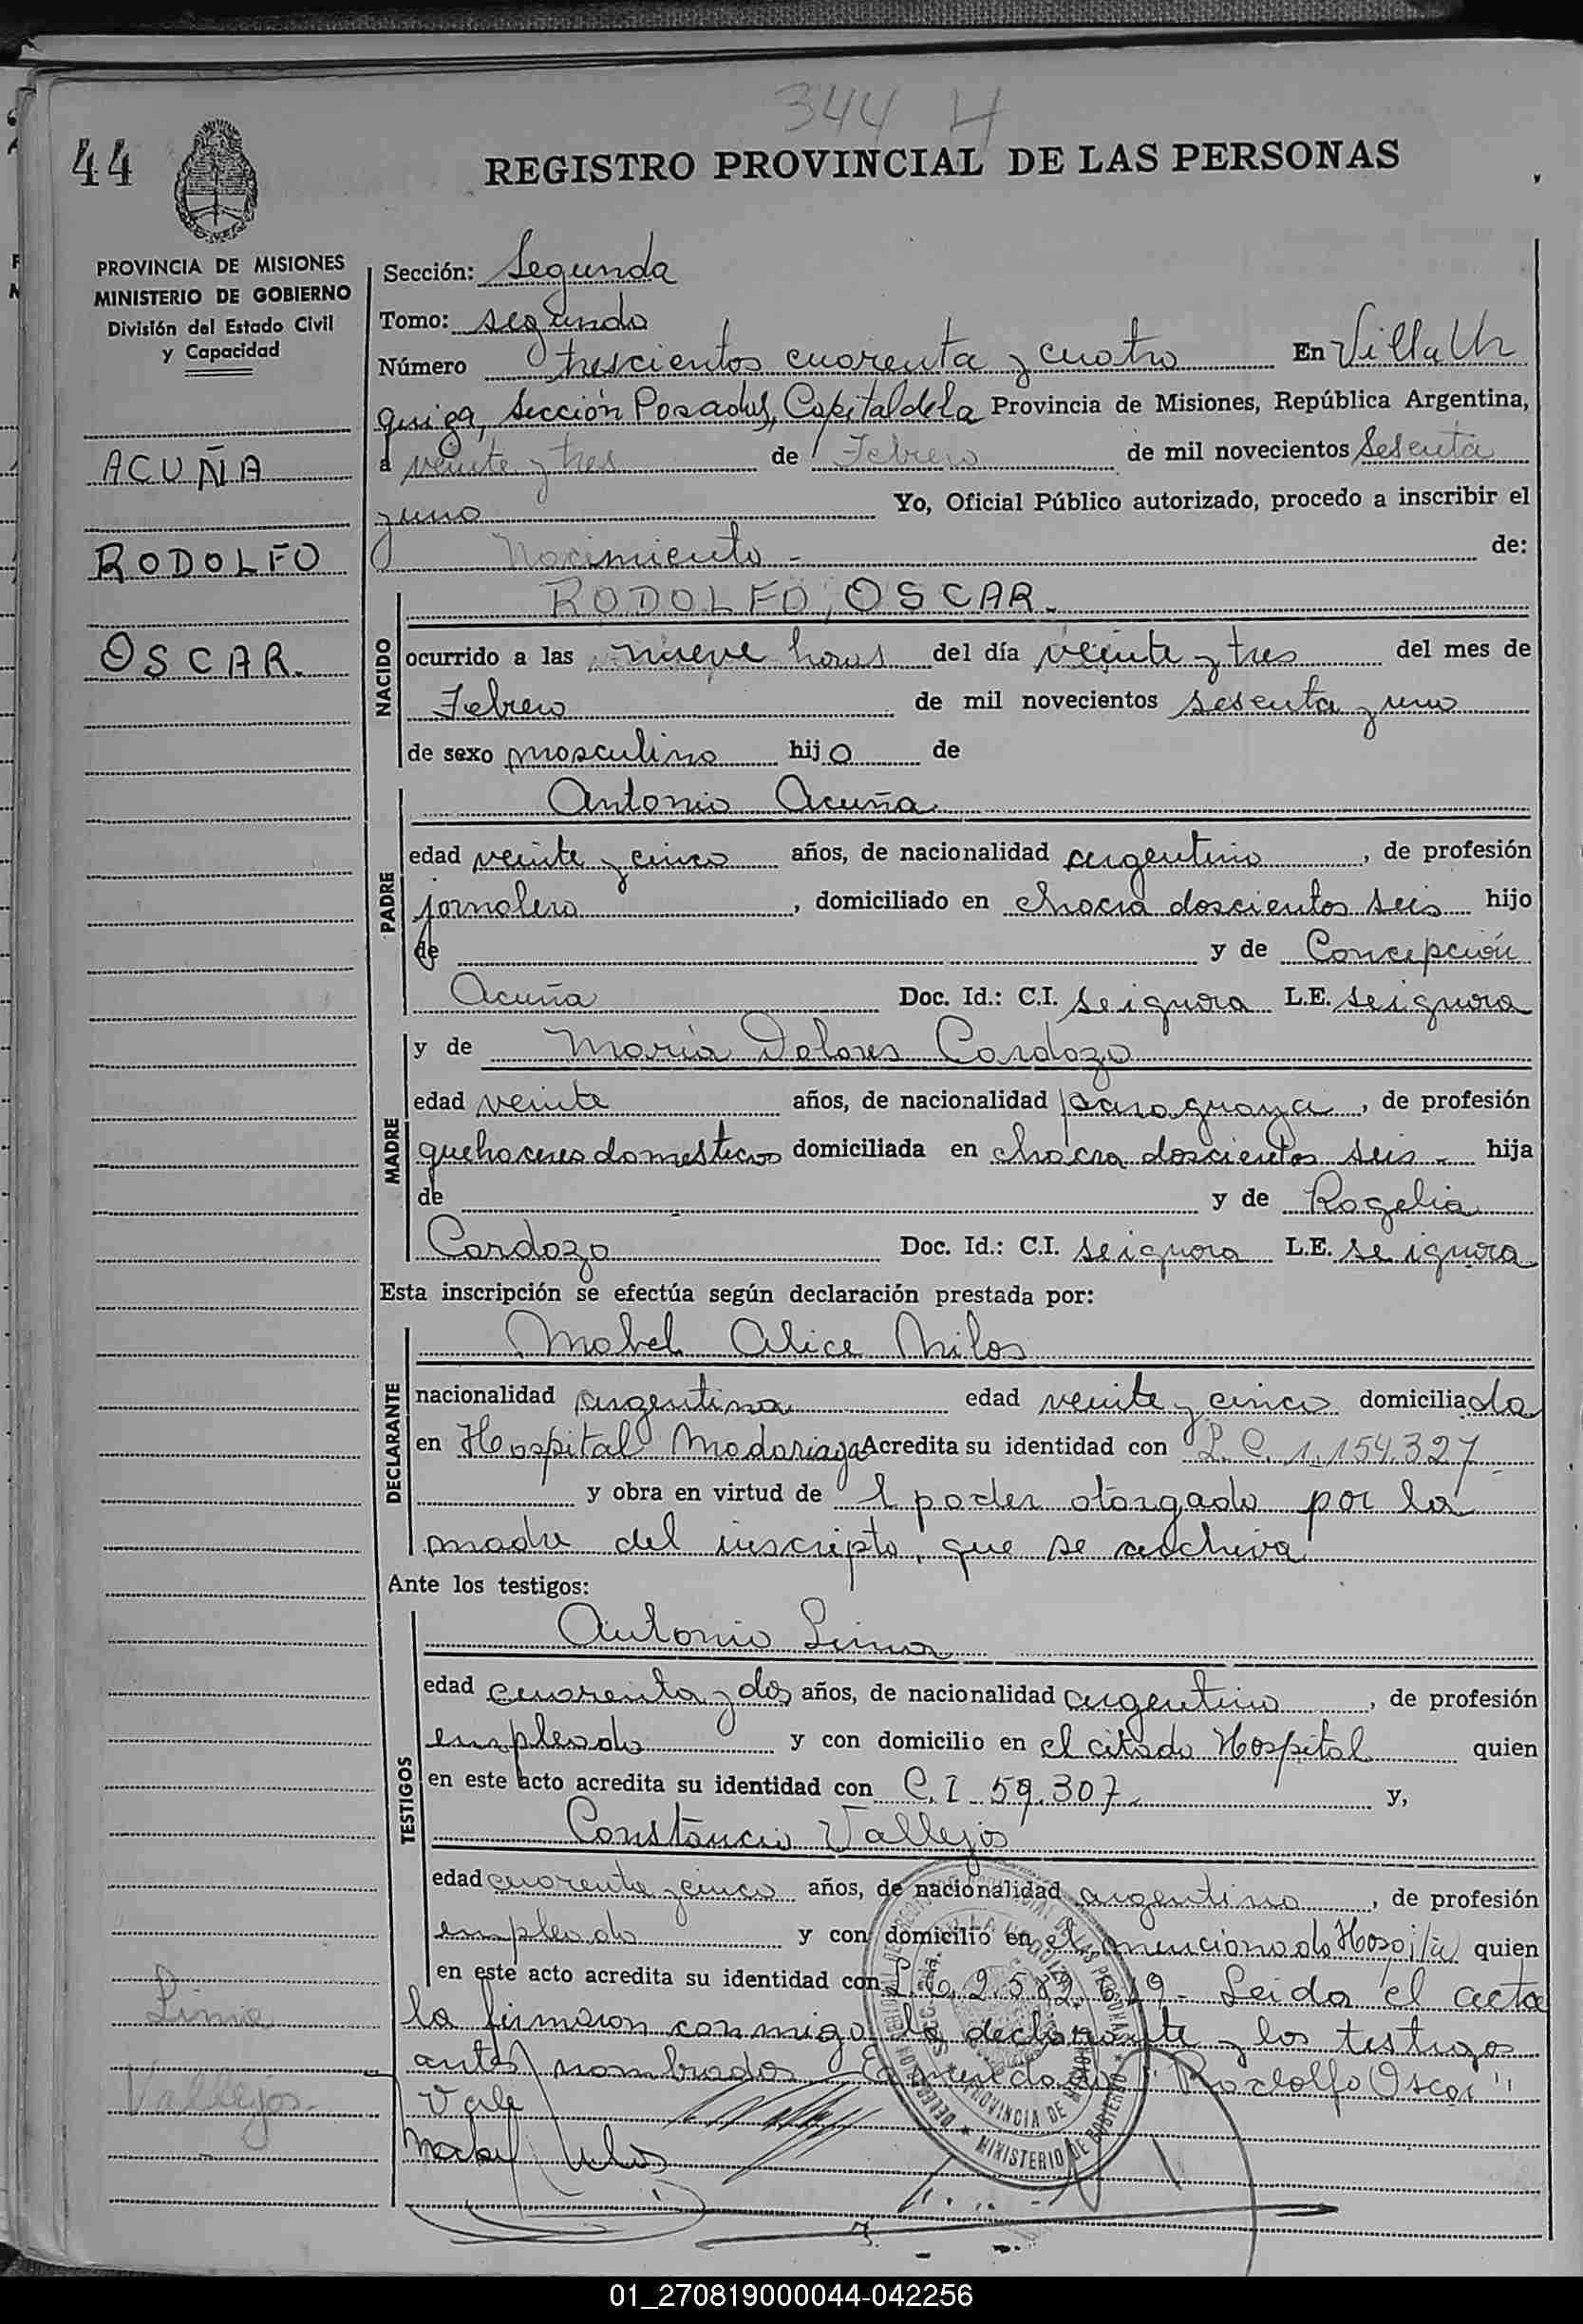 344 H
44
REGISTRO PROVINCIAL DE LAS PERSONAS
PROVINCIA DE MISIONES
MINISTERIO DE GOBIERNO
División del Estado Civil
y Capacidad
ACUÑA
RODOLFO
OSCAR.
Sección: Segunda
Tomo: segundo
Número trescientos cuarenta y cuatro En Villa Ur
quiza, Sección Posadas, Capital de la Provincia de Misiones, República Argentina,
a veinte y tres de Febrero de mil novecientos Sesenta
y uno Yo, Oficial Público autorizado, procedo a inscribir el
Nacimiento - de:
NACIDO
RODOLFO, OSCAR.
ocurrido a las nueve horas del día veinte y tres del mes de
Febrero de mil novecientos sesenta y uno
de sexo masculino hijo de
PADRE
Antonio Acuña
edad veinte y cinco años, de nacionalidad argentino, de profesión
jornalero, domiciliado en chacra doscientos seis hijo
de y de Concepción
Acuña Doc. Id.: C.I. se ignora L.E. se ignora
y de María Dolores Cardozo
MADRE
edad veinte años, de nacionalidad paraguaya, de profesión
quehaceres domesticos domiciliada en chacra doscientos seis - hija
de y de Rogelia
Cardozo Doc. Id.: C.I. se ignora L.E. se ignora
Esta inscripción se efectúa según declaración prestada por:
DECLARANTE
Mabel Alice Milos
nacionalidad argentina edad veinte y cinco domiciliada
en Hospital Madariaga Acredita su identidad con L.C. 1.154.327
y obra en virtud de l poder otorgado por la
madre del inscripto, que se archiva
Ante los testigos:
TESTIGOS
Antonio Lima
edad cuarenta y dos años, de nacionalidad argentino, de profesión
empleado y con domicilio en el citado Hospital quien
en este acto acredita su identidad con C.I. 59.307- y,
Constancio Vallejos
edad cuarenta y cinco años, de nacionalidad argentino, de profesión
empleado y con domicilio en el mencionado Hospital quien
en este acto acredita su identidad con 2.582. - Leida el acta
la firmaron conmigo la declarante y los testigos
antes nombrados - Enmendado: "Rodolfo Oscar"
Vale
Lima
Vallejos
PROVINCIA DE MISIONES
MINISTERIO DE GOBIERNO
01_270819000044-042256